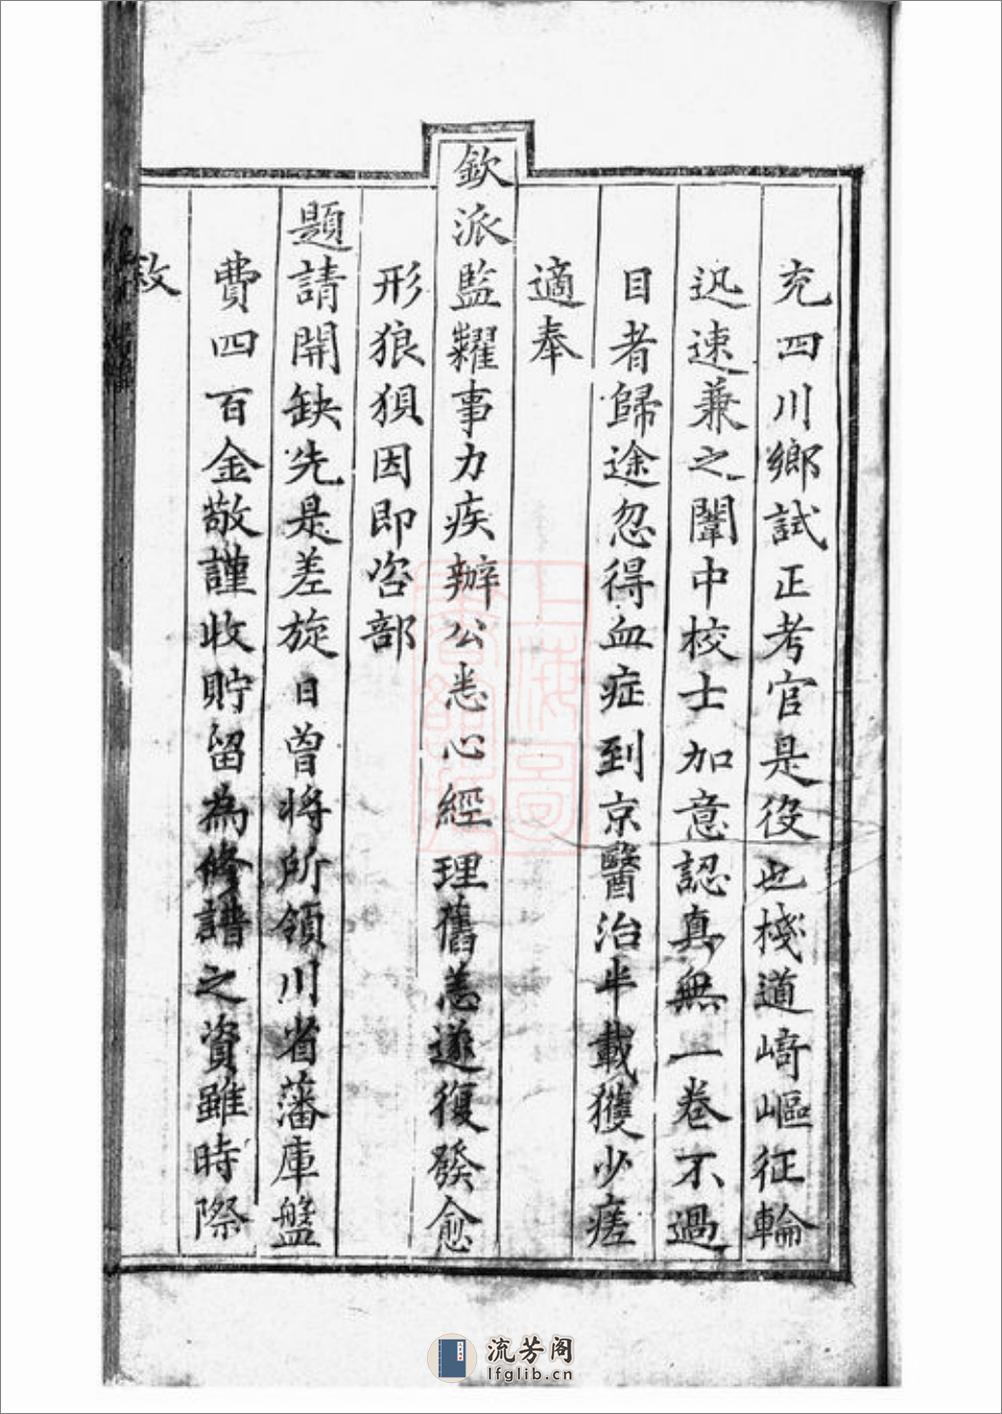 充四川鄉試正考官是役也棧道崎嶇征輪
迅速兼之闈中校士加意認真無一卷不過
目者歸途忽得血症到京醫治半載獲少瘥
適奉
欽派監糶事力疾辦公悉心經理舊恙遂復發愈
形狼狽因即咨部
題請開缺先是差旋日曾將所領川省藩庫盤
費四百金敬謹收貯留為修譜之資雖時際
上海圖書館藏
流芳阁
lfglib.cn